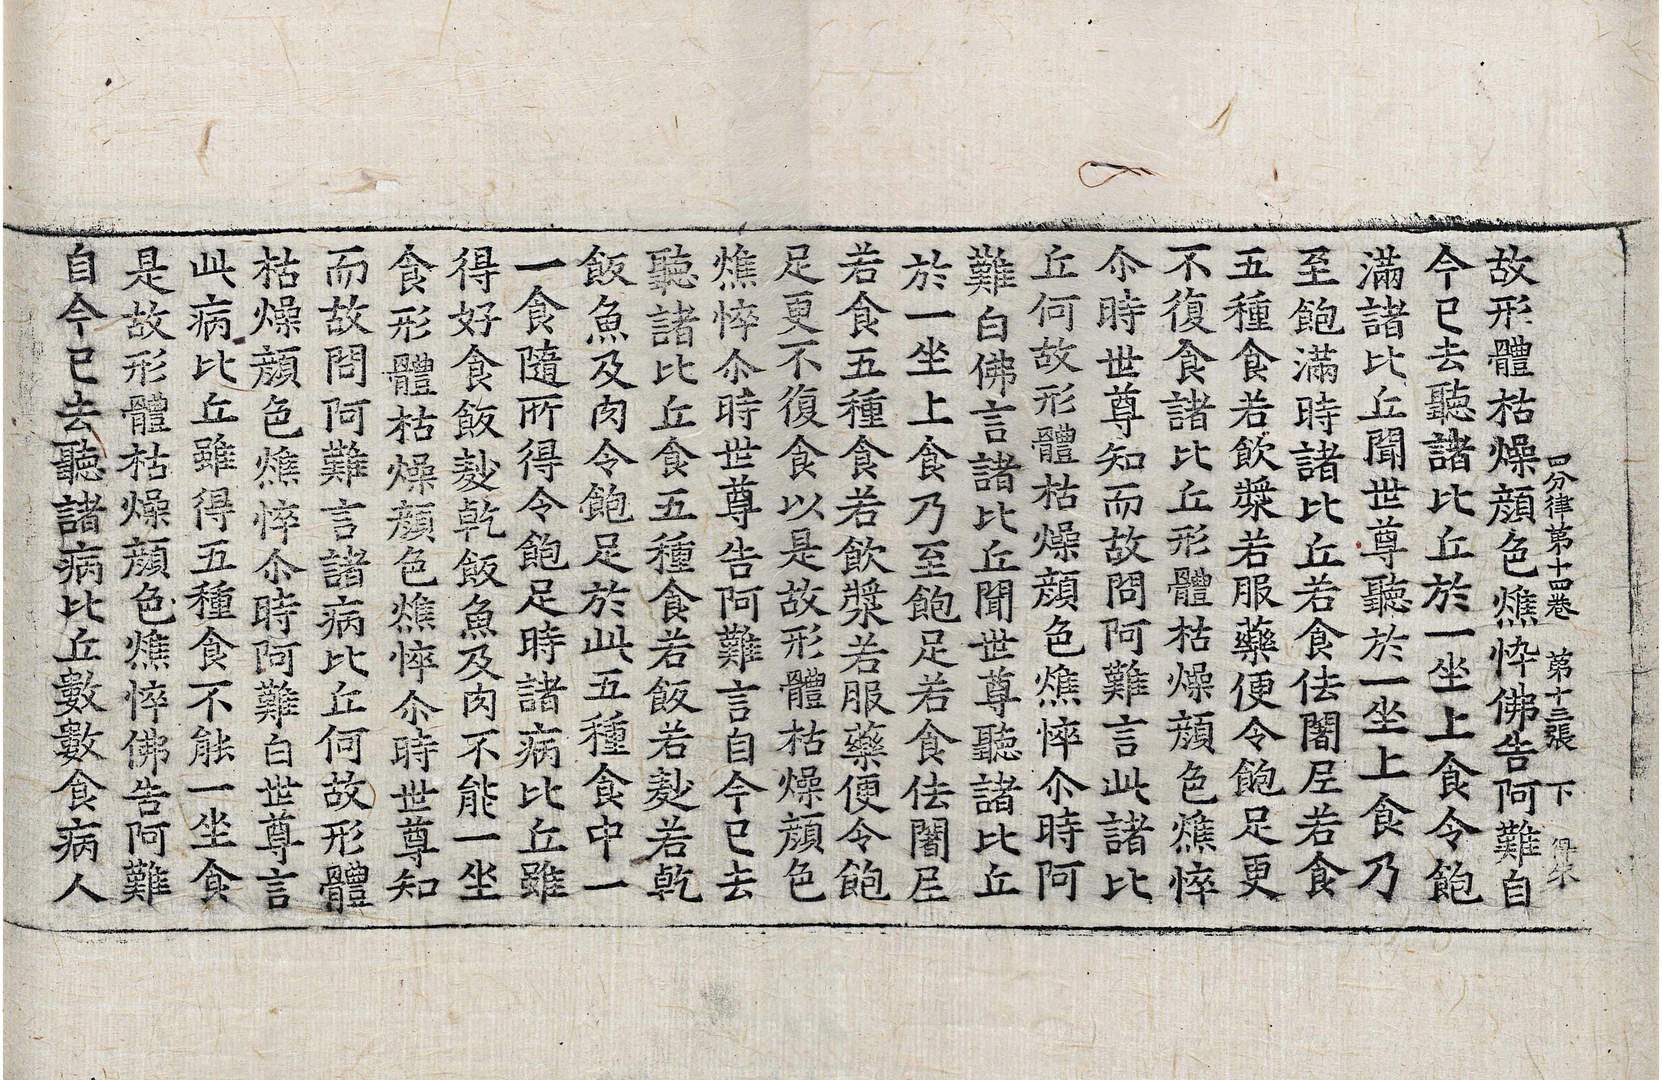 四分律第十四卷　第十三張　下
故形體枯燥顔色燋忰佛告阿難自
今已去聽諸比丘於一坐上食令飽
滿諸比丘聞世尊聽於一坐上食乃
至飽滿時諸比丘若食佉闍尼若食
五種食若飲漿若服藥便令飽足更
不復食諸比丘形體枯燥顔色燋悴
尒時世尊知而故問阿難言此諸比
丘何故形體枯燥顔色燋悴尒時阿
難白佛言諸比丘聞世尊聽諸比丘
於一坐上食乃至飽足若食佉闍尼
若食五種食若飲漿若服藥便令飽
足更不復食以是故形體枯燥顔色
燋悴尒時世尊告阿難言自今已去
聽諸比丘食五種食若飯若麨若乾
飯魚及肉令飽足於此五種食中一
一食隨所得令飽足時諸病比丘雖
得好食飯麨乾飯魚及肉不能一坐
食形體枯燥顔色燋悴尒時世尊知
而故問阿難言諸病比丘何故形體
枯燥顔色燋悴尒時阿難白世尊言
此病比丘雖得五種食不能一坐食
是故形體枯燥顔色燋悴佛告阿難
自今已去聽諸病比丘數數食病人